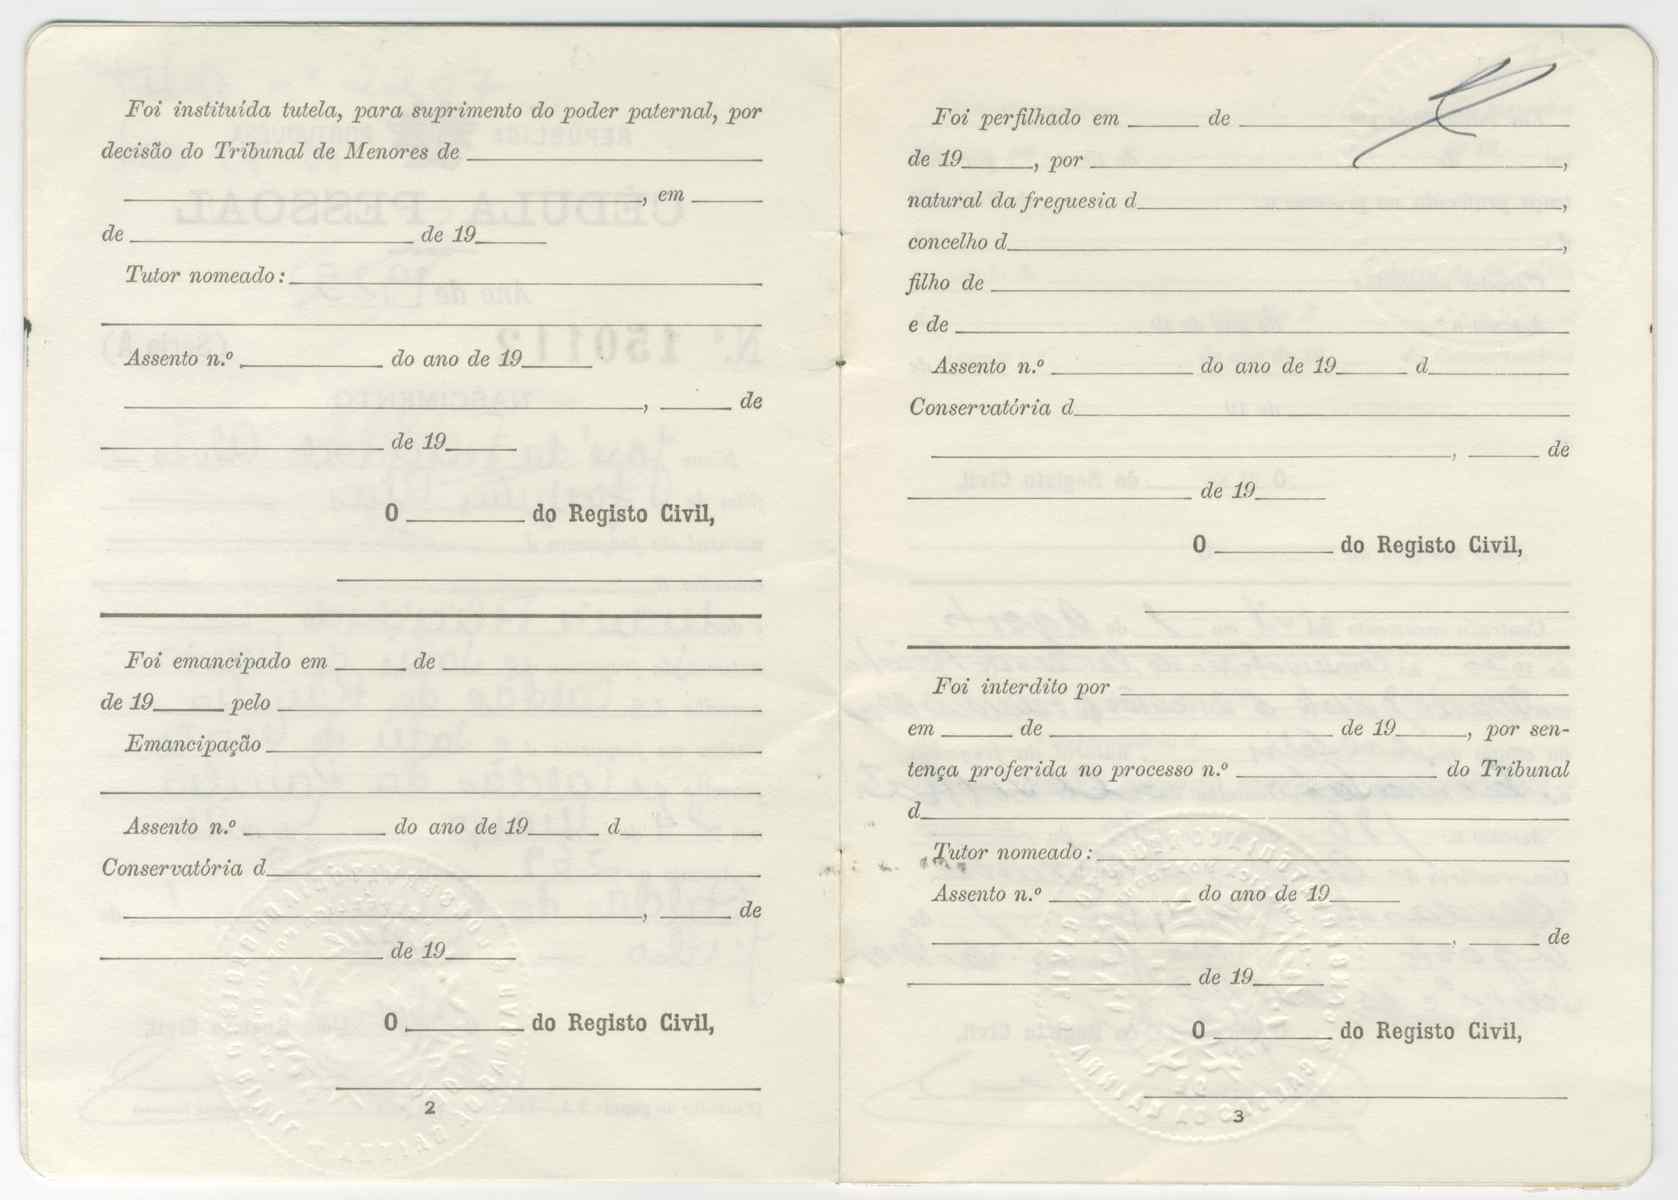 Foi instituída tutela, para suprimento do poder paternal, por
decisão do Tribunal de Menores de
, em
de de 19
Tutor nomeado:
Assento n.º do ano de 19
, de
de 19
O do Registo Civil,
Foi emancipado em de
de 19 pelo
Emancipação
Assento n.º do ano de 19 d
Conservatória d
, de
de 19
O do Registo Civil,
2
Foi perfilhado em de
de 19 , por ,
natural da freguesia d ,
concelho d ,
filho de
e de
Assento n.º do ano de 19 d
Conservatória d
, de
de 19
O do Registo Civil,
Foi interdito por
em de de 19 , por sen-
tença proferida no processo n.º do Tribunal
d
Tutor nomeado:
Assento n.º do ano de 19
, de
de 19
O do Registo Civil,
3